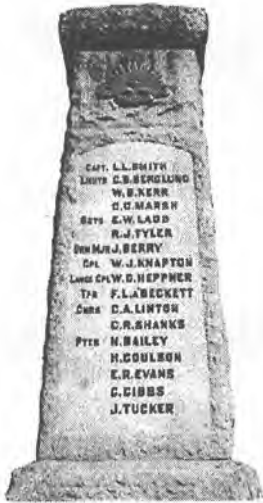 CAPT. L.L. SMITH
LIEUTS C.B. BERGLUND
W.B. KERR
C.C. MARSH
SGTS E.W. LADD
R.J. TYLER
DRM MJR J. BERRY
CPL W.J. KNAPTON
LANCE CPL W.G. HEPPNER
TPR F.L. A'BECKETT
GNRS C.A. LINTON
C.R. SHANKS
PTES N. BAILEY
H. COULSON
E.R. EVANS
C. GIBBS
J. TUCKER